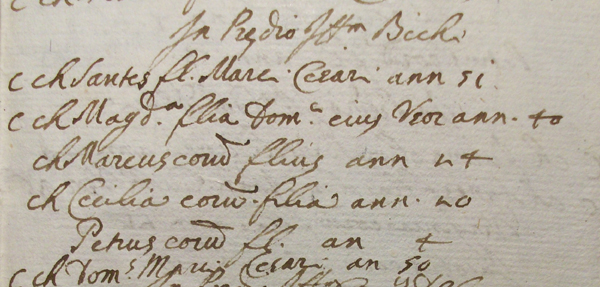 In Predio Ill^m Bichi
c ch Santes fl. Marci Cesari ann 51
c ch Magd.^a filia Dom.^ci eius Uxor ann. 40
ch Marcus coru͂ filius ann 24
ch Cecilia coru͂. filia ann. 20
Petrus coru͂ fl. an 4
c ch Dom.^s Marci Cesari an 50